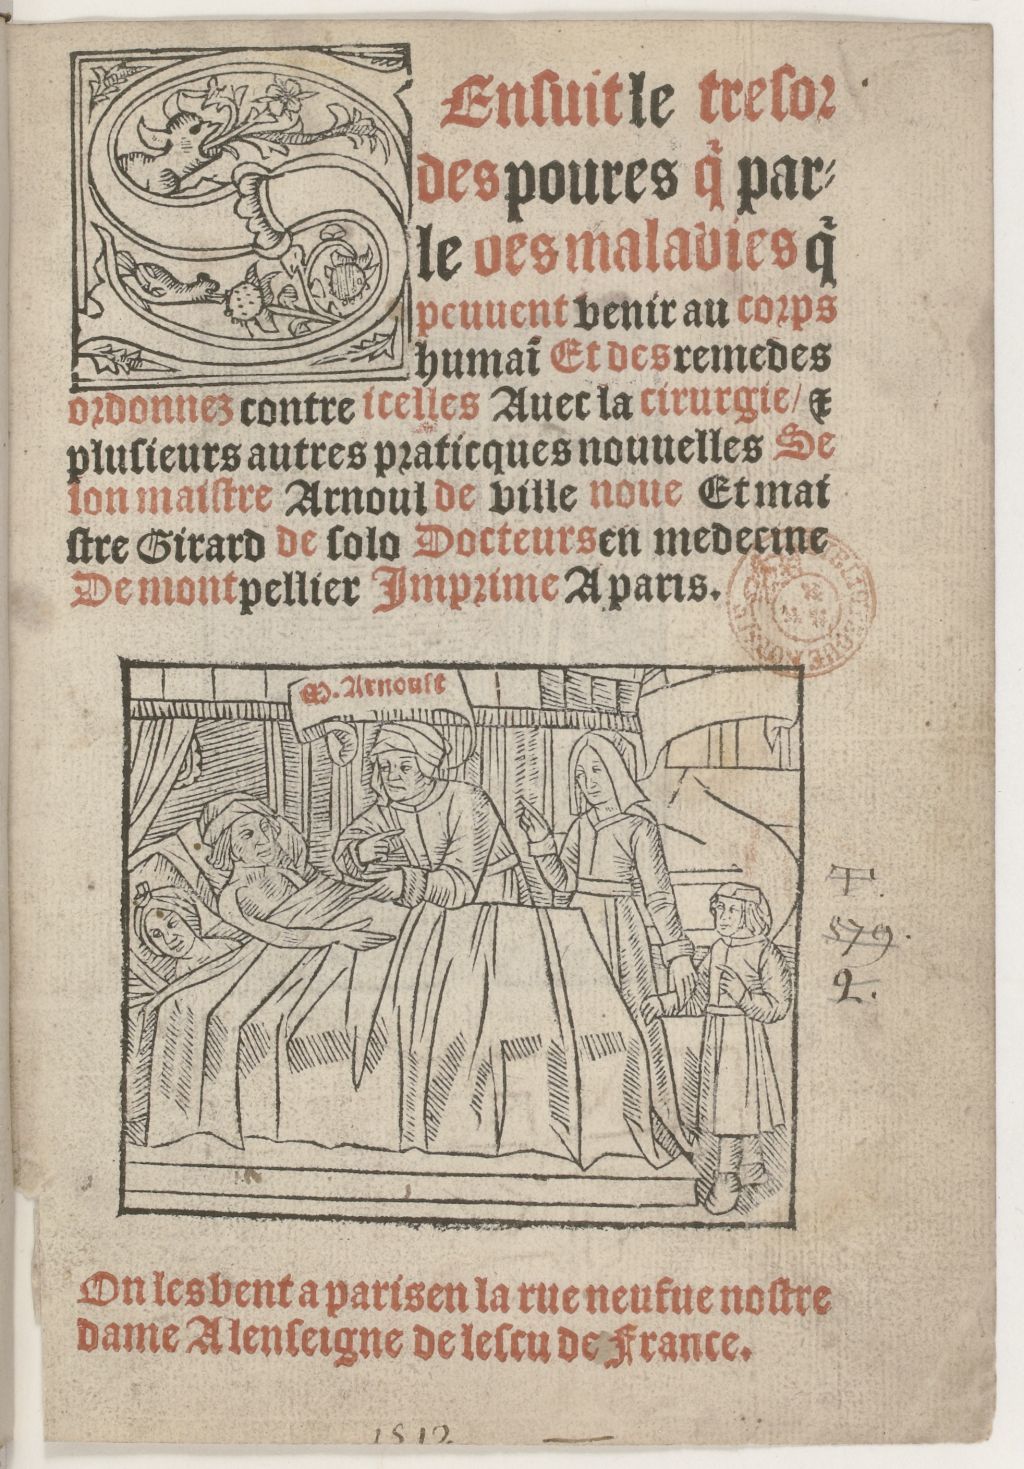 S Ensuit le tresor
des poures q̃ par⸗
le des maladies q̃
peuuent venir au corps
humaĩ Et des remedes
ordonnez contre icelles Auec la cirurgie / &
plusieurs autres praticques nouuelles Se
lon maistre Arnoul de ville noue Et mai
stre Girard de solo Docteurs en medecine
De montpellier Imprime A paris.
M. Arnoult
T.
579.
2.
On les vent a paris en la rue neufue nostre
dame A lenseigne de lescu de France.
1512